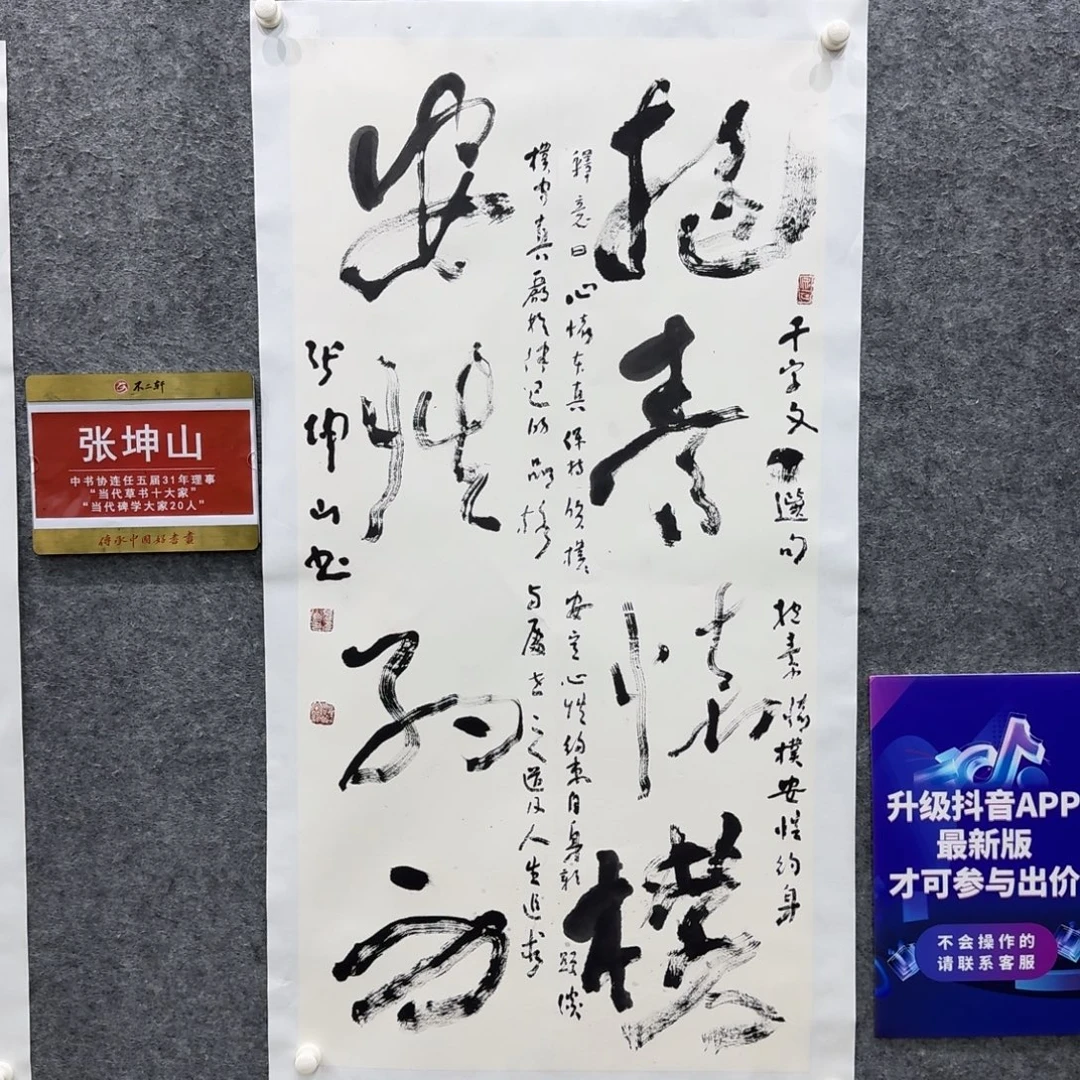 抱素情樸
安性約身
千字文一選句 抱素情樸安性約身
釋意曰 心情本真保持信樸 安定心性約束自身彰顯淡
樸守真嚴於律己的品格 与處世之道及人生追求
张坤山书
不二轩
张坤山
中书协连任五届31年理事
“当代草书十大家”
“当代碑学大家20人”
传承中国好书画
升级抖音APP
最新版
才可参与出价
不会操作的
请联系客服